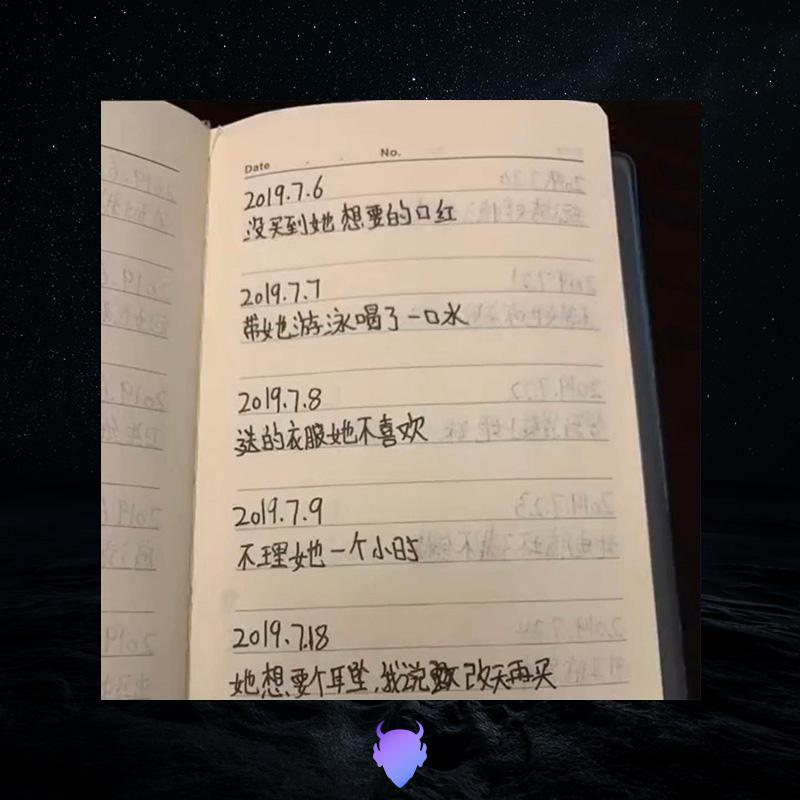 Date
No.
2019.7.6
没买到她想要的口红
2019.7.7
带她游泳喝了一口水
2019.7.8
送的衣服她不喜欢
2019.7.9
不理她一个小时
2019.7.18
她想要个耳坠,我说改天再买